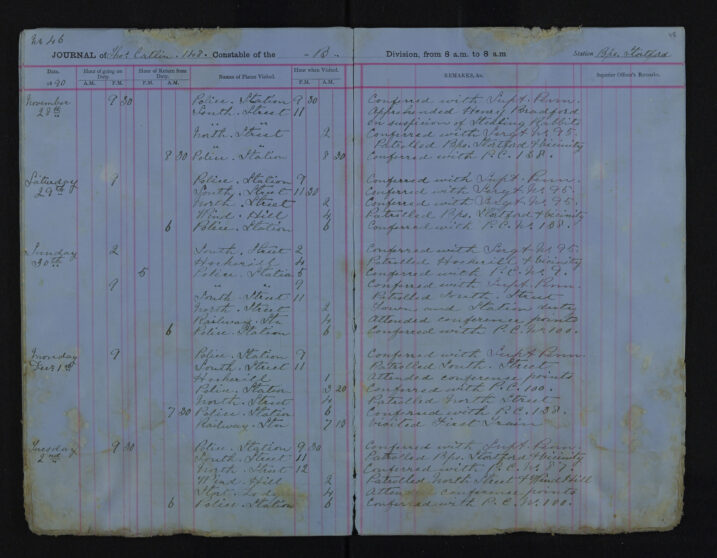 No 46
JOURNAL of Thos Catlin. 148. Constable of the - B - Division, from 8 a.m. to 8 a.m Station Bps. Stortford
Date. Hour of going on Duty. Hour of Return from Duty. Names of Places Visited. Hour when Visited. REMARKS, &c. Superior Officer's Remarks.
1890 A.M. P.M. A.M. P.M. A.M. P.M. A.M.
November 9 30 Police. Station 9 30 Conferred with Supt. Bunn.
28th South. Street 11 Apprehended Henry Bradford
" " on suspicion of Stealing Rabbits
North. Street 2 Conferred with Sergt No 95.
" " Patrolled Bps. Stortford & vicinity
8 30 Police. Station 8 30 Conferred with P.C. 138.
Saturday 9 Police. Station 9 Conferred with Supt. Bunn.
29th South. Street 11 30 Conferred with Sergt No 95.
North. Street 2 Conferred with Sergt No 95.
Wind. Hill 4 Patrolled Bps. Stortford & vicinity
6 Police. Station 6 Conferred with P.C. No 138.
Sunday 2 South. Street 2 Conferred with Sergt No 95.
30th Hockerill 4 Patrolled Hockerill & vicinity
5 Police. Station 5 Conferred with P.C. No 9.
9 " " 9 Conferred with Supt. Bunn.
South. Street 11 Patrolled South. Street
North. Street 2 Town, and Station
Railway. Stn 4 Attended conference points
6 Police. Station 6 Conferred with P.C. No 100.
Monday 9 Police. Station 9 Conferred with Supt Bunn.
Dec 1st South. Street 11 Patrolled South. Street
Hockerill 1 Attended conference points
Police. Station 3 20 Conferred with P.C. 100.
North. Street 4 Patrolled North Street
7 30 Police. Station 6 Conferred with P.C. 138.
Railway. Stn 7 15 Visited First Train
Tuesday 9 30 Police. Station 9 30 Conferred with Supt. Bunn.
2nd South. Street 11 Patrolled Bps. Stortford & vicinity
North. Street 12 Conferred with P.C. No 87.
Wind. Hill 2 Patrolled North Street & Wind Hill
4 Attended conference points
6 Police. Station 6 Conferred with P.C. No 100.